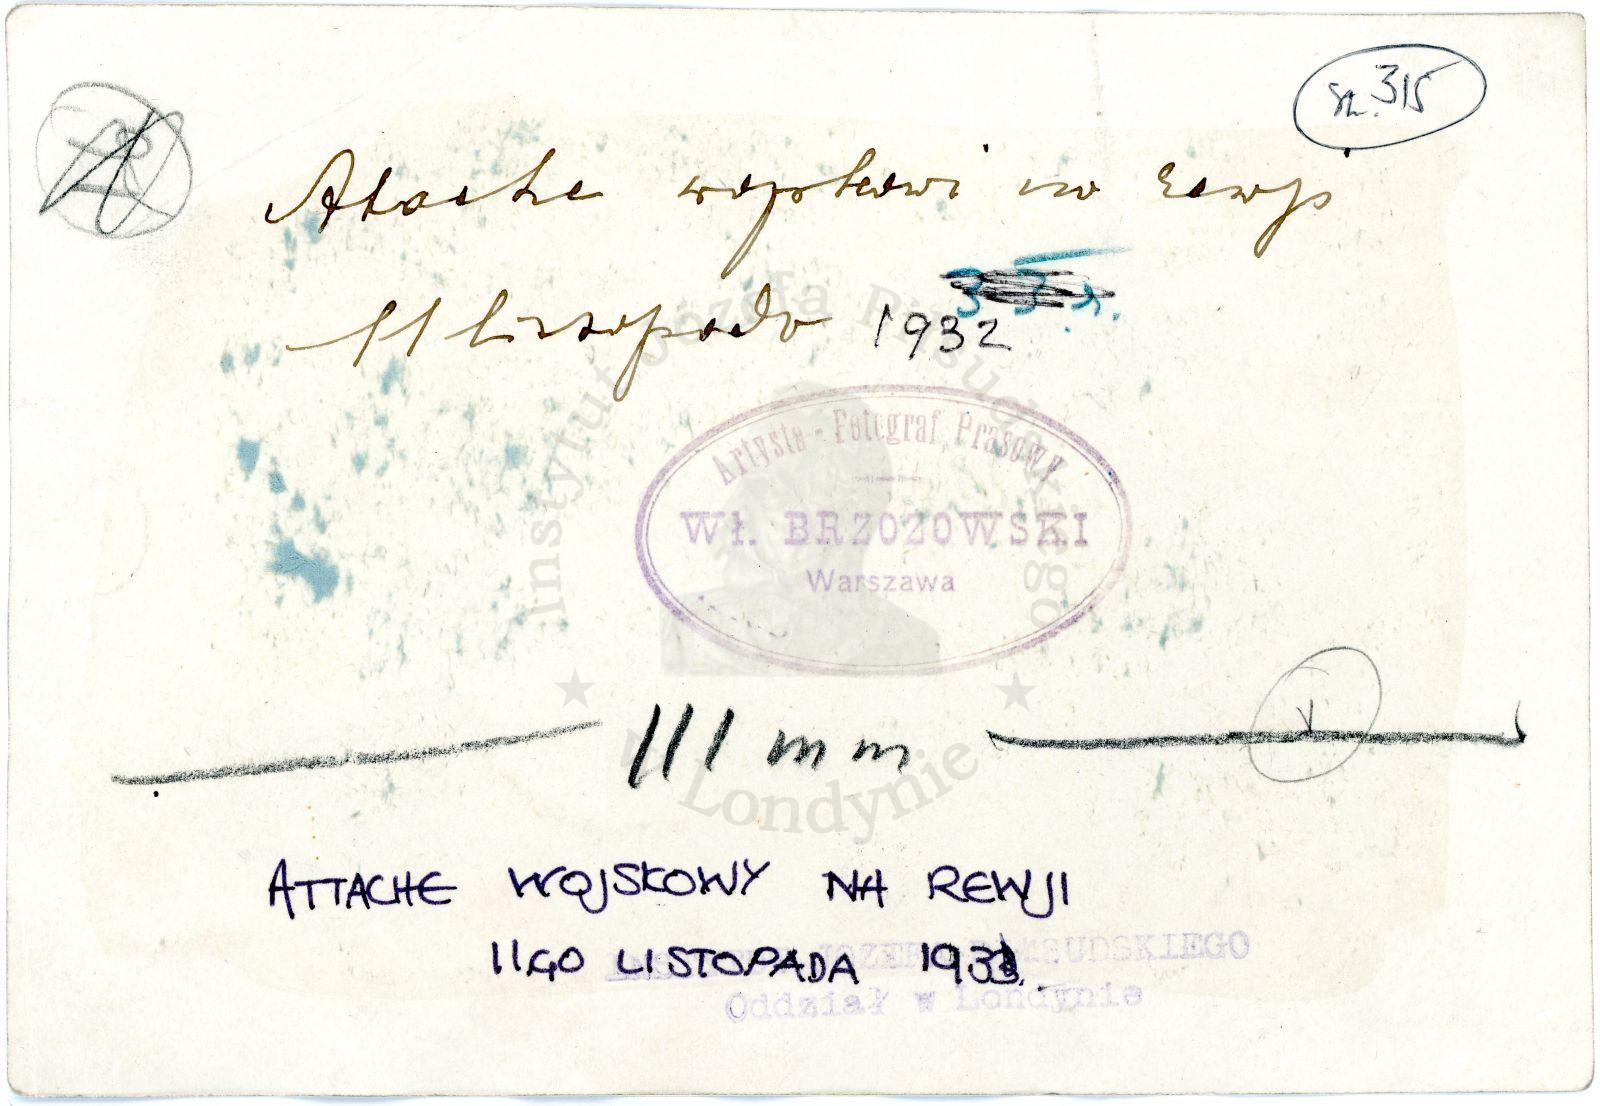 sz. 315
Atache wojskowi na rewji
33 r.
11 listopada 1932
Artysta-Fotograf Prasowy
WŁ. BRZOZOWSKI
Warszawa
Instytut Józefa Piłsudskiego
w Londynie
111 mm
ATTACHE WOJSKOWY NA REWJI
11GO LISTOPADA 193
JÓZEFA PIŁSUDSKIEGO
Oddział w Londynie